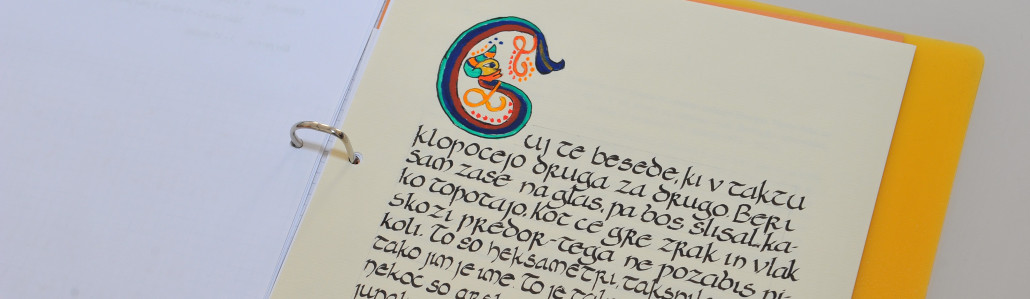 Cuj te besede, ki v taktu
klopocejo druga za drugo. Beri
sam zase na glas, pa bos slisal, ka-
ko topotajo, kot ce gre zrak in vlak
skozi predor - tega ne pozabis ni-
koli. To so heksametri,
tako jim je ime. To je
nekoc so